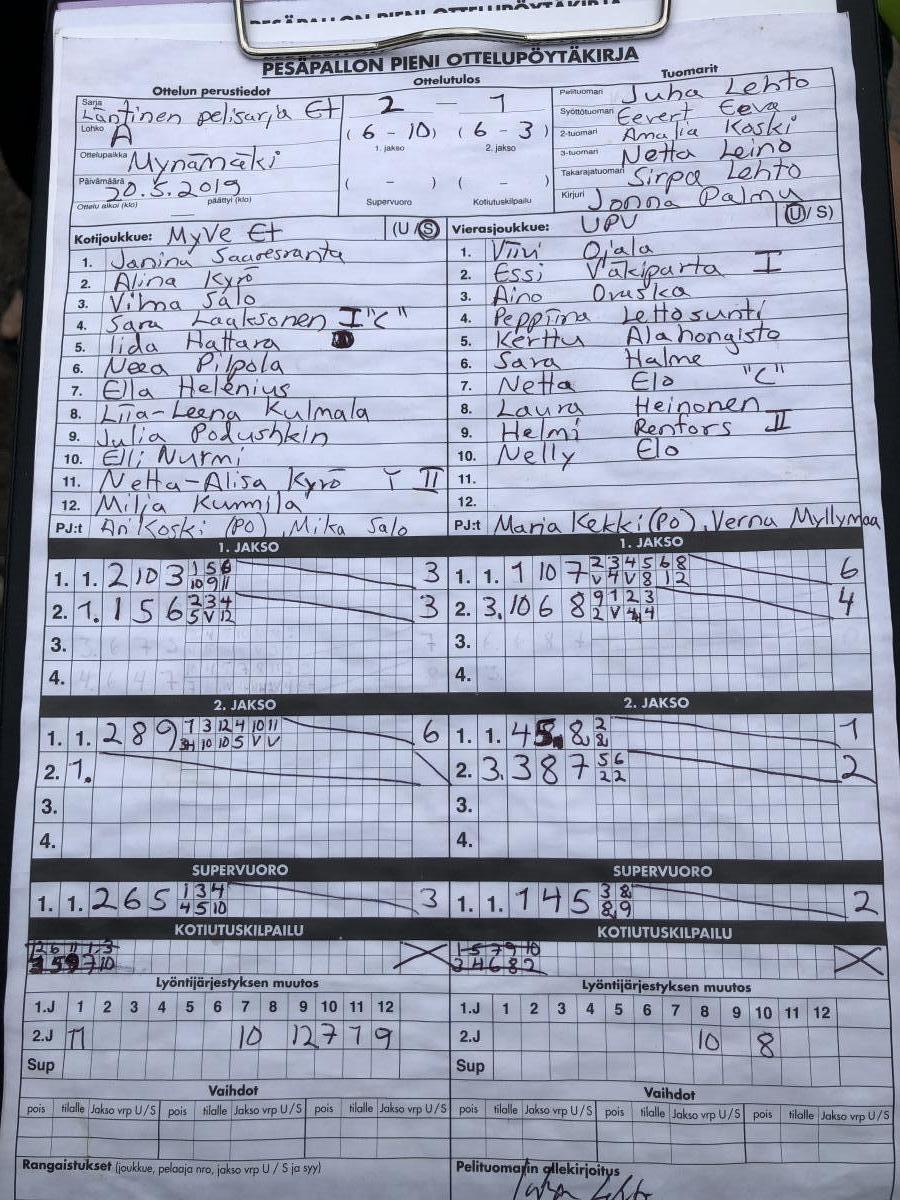 PESÄPALLON PIENI OTTELUPÖYTÄKIRJA
Ottelun perustiedot
Sarja Läntinen pelisarja Et
Lohko A
Ottelupaikka Mynämäki
Päivämäärä 20.5.2019
Ottelu alkoi (klo) — päättyi (klo)
Ottelutulos
2 — 1
(6 - 10) (6 - 3)
1. jakso 2. jakso
( - ) ( - )
Supervuoro Kotiutuskilpailu
Tuomarit
Pelituomari Juha Lehto
Syöttötuomari Eevert Eeva
2-tuomari Amalia Koski
3-tuomari Netta Leino
Takarajatuomari Sirpa Lehto
Kirjuri Jonna Palmu
Kotijoukkue: MyVe Et (U/S)
1. Janina Saaresranta
2. Alina Kyrö
3. Vilma Salo
4. Sara Laaksonen I "C"
5. Iida Hattara
6. Neea Pilpola
7. Ella Helenius
8. Liia-Leena Kulmala
9. Julia Podushkin
10. Elli Nurmi
11. Netta-Alisa Kyrö Y II
12. Milja Kunnila
PJ:t Ari Koski (PO), Mika Salo
Vierasjoukkue: UPV (U/S)
1. Viivi Ojala
2. Essi Väkiparta I
3. Aino Oruska
4. Peppiina Lettosunti
5. Kerttu Alahongisto
6. Sara Halme
7. Netta Elo "C"
8. Laura Heinonen
9. Helmi Renfors II
10. Nelly Elo
11.
12.
PJ:t Marja Kekki (PO), Verna Myllymaa
1. JAKSO
1. 1. 2 10 3 1 5 6 3
10 9 11
2. 1. 1 5 6 2 3 4 3
5 V 12
3.
4.
1. JAKSO
1. 1. 1 10 7 2 3 4 5 6 8 6
V 4 V 8 12
2. 3. 10 6 8 9 1 2 3 4
2 V 4 4
3.
4.
2. JAKSO
1. 1. 2 8 9 1 3 12 4 10 11 6
10 10 5 V V
2. 1.
3.
4.
2. JAKSO
1. 1. 4 5. 8 2 1
8
2. 3. 3 8 7 5 6 2
2 2
3.
4.
SUPERVUORO
1. 1. 2 6 5 1 3 4 3
4 5 10
SUPERVUORO
1. 1. 1 4 5 3 8 2
8 9
KOTIUTUSKILPAILU
KOTIUTUSKILPAILU
1 5 7 9 10
3 4 6 8 2
Lyöntijärjestyksen muutos
1.J 1 2 3 4 5 6 7 8 9 10 11 12
2.J 11 10 12 7 1 9
Sup
Lyöntijärjestyksen muutos
1.J 1 2 3 4 5 6 7 8 9 10 11 12
2.J 10 8
Sup
Vaihdot
pois tilalle Jakso vrp U/S pois tilalle Jakso vrp U/S pois tilalle Jakso vrp U/S
Vaihdot
pois tilalle Jakso vrp U/S pois tilalle Jakso vrp U/S pois tilalle Jakso vrp U/S
Rangaistukset (joukkue, pelaaja nro, jakso vrp U / S ja syy)
Pelituomarin allekirjoitus